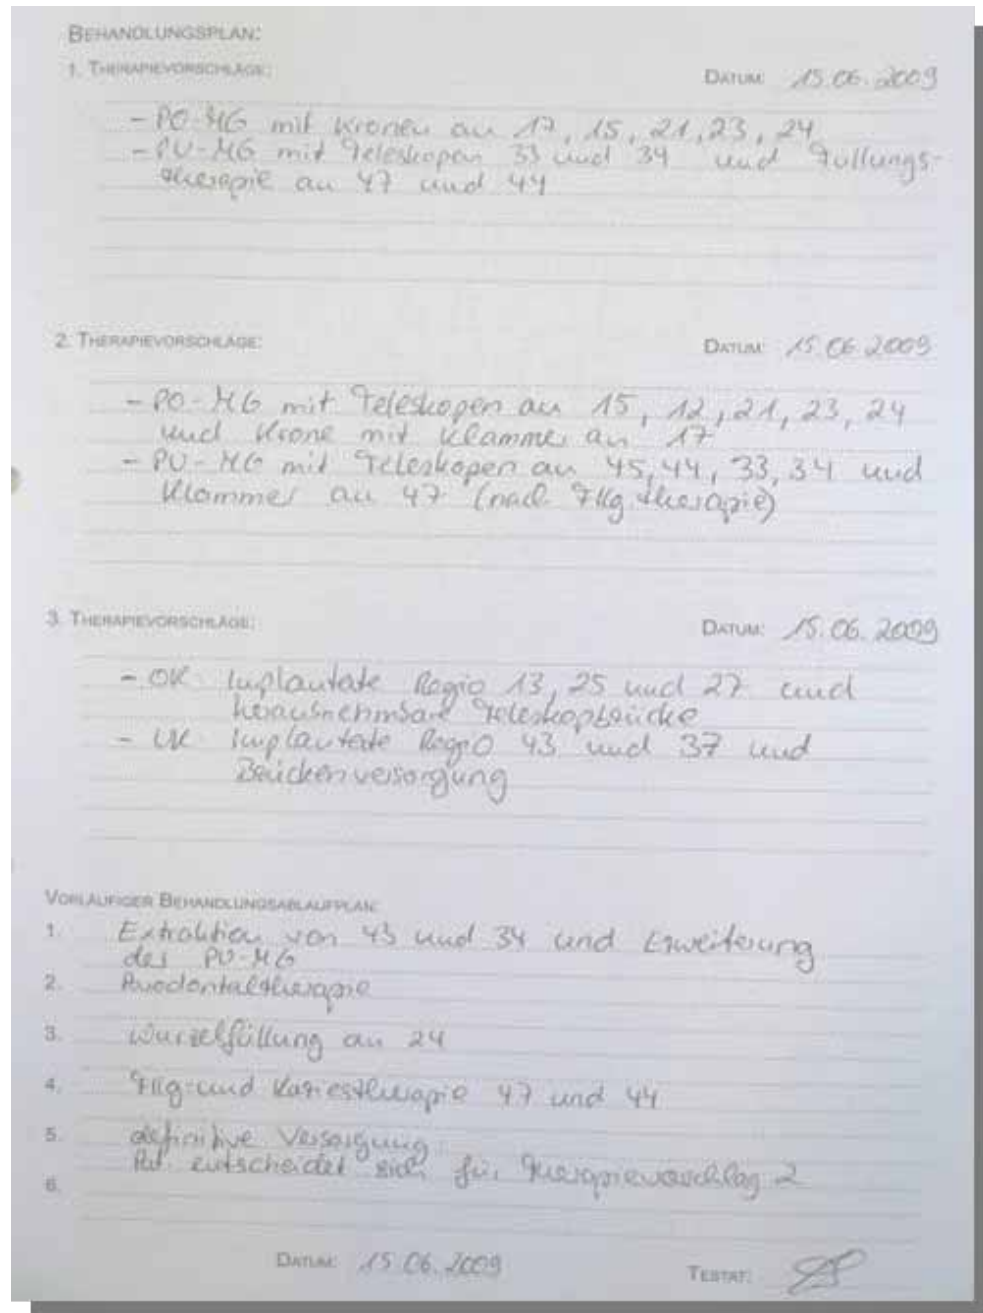 BEHANDLUNGSPLAN:
1. THERAPIEVORSCHLÄGE:
DATUM: 15.06.2009
- PO-MG mit Kronen an 17, 15, 21, 23, 24
- PU-MG mit Teleskopen 33 und 34 und Füllungs-
therapie an 47 und 44
2. THERAPIEVORSCHLÄGE:
DATUM: 15.06.2009
- PO-MG mit Teleskopen an 15, 12, 21, 23, 24
und Krone mit Klammer an 17
- PU-MG mit Teleskopen an 45, 44, 33, 34 und
Klammer an 47 (nach Fllg.therapie)
3. THERAPIEVORSCHLÄGE:
DATUM: 15.06.2009
- OK Implantate Regio 13, 25 und 27 und
herausnehmbare Teleskopbrücke
- UK Implantate Regio 43 und 37 und
Brückenversorgung
VORLÄUFIGER BEHANDLUNGSABLAUFPLAN:
1. Extraktion von 43 und 34 und Erweiterung
der PU-MG
2. Parodontaltherapie
3. Wurzelfüllung an 24
4. Fllg- und Kariestherapie 47 und 44
5. definitive Versorgung
Pat. entscheidet sich für Therapievorschlag 2
6.
DATUM: 15.06.2009
TESTAT: